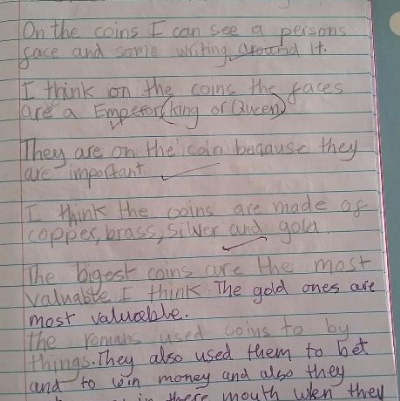 On the coins I can see a persons
face and some writing around it.
I think on the coins the faces
are a Emperor (king or Queen)
They are on the coin because they
are important
I think the coins are made of
copper, brass, silver and gold.
The bigest coins are the most
valuable I think. The gold ones are
most valuable.
the romans used coins to by
things. They also used them to bet
and to win money and also they
in there mouth wen they